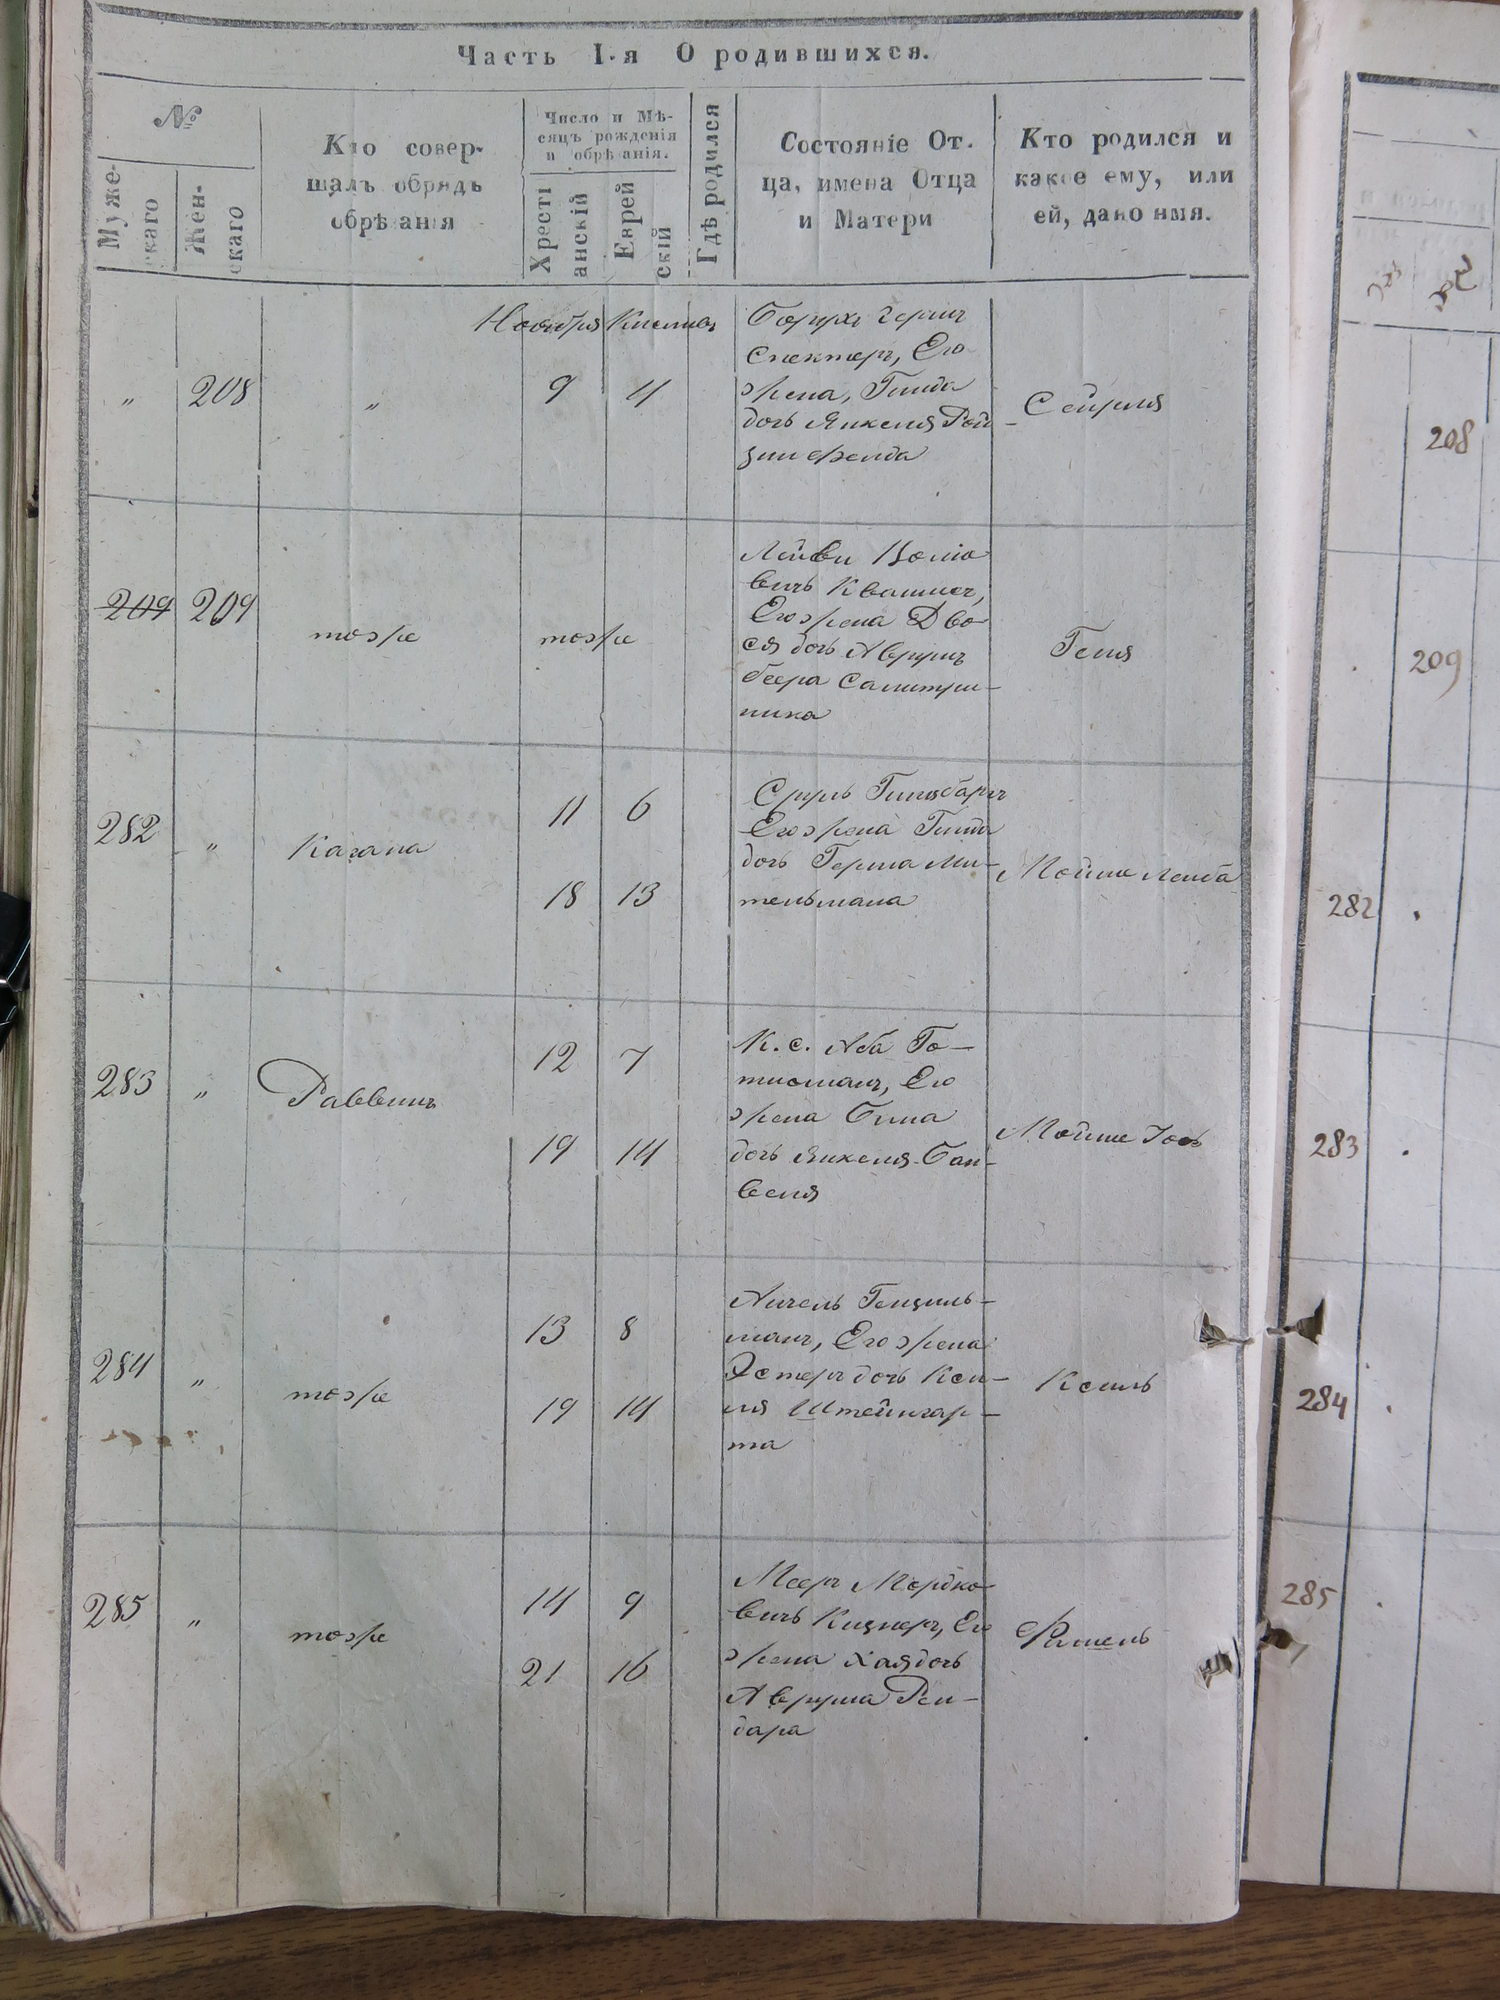 Часть I-я О родившихся.
№
Мужескаго
Женскаго
Кто совер-
шалъ обрядъ
обрѣзанія
Число и Мѣ-
сяцъ рожденія
и обрѣзанія.
Христі
анскій
Еврей
скій
Гдѣ родился
Состояніе От-
ца, имена Отца
и Матери
Кто родился и
какое ему, или
ей, дано имя.
Ноября Кислива
" 208 " 9 4
Борухъ Герш
Спекторъ, Его
жена, Гинда
дочь Янкеля Рой
зинфелда
Сейрля
209 209 тоже тоже
Лейви
вичъ Квашис,
Его жена Дво-
ся дочь Аврумъ
беера Салитрин-
ника
Геня
282 " Кагана
11 6
18 13
Сруль Гинзбаргъ
Его жена Гинда
дочь Герша Ми-
тельмана
Мойше Лейба
283 " Раввинъ
12 7
19 14
К. с. Аба Го-
тисманъ, Его
жена Бина
дочь Янкеля Бан-
веля
Мойше Іось
284 " тоже
13 8
19 14
Анчель Генциль-
манъ, Его жена
Эстеръ дочь Кел-
ля Штейнгар-
та
Кельь
285 " тоже
14 9
21 16
Мееръ Мордко-
вичъ Кицнеръ, Его
жена Хая дочь
Аврума Рей-
дара
Фишель
208
209
282
283
284
285